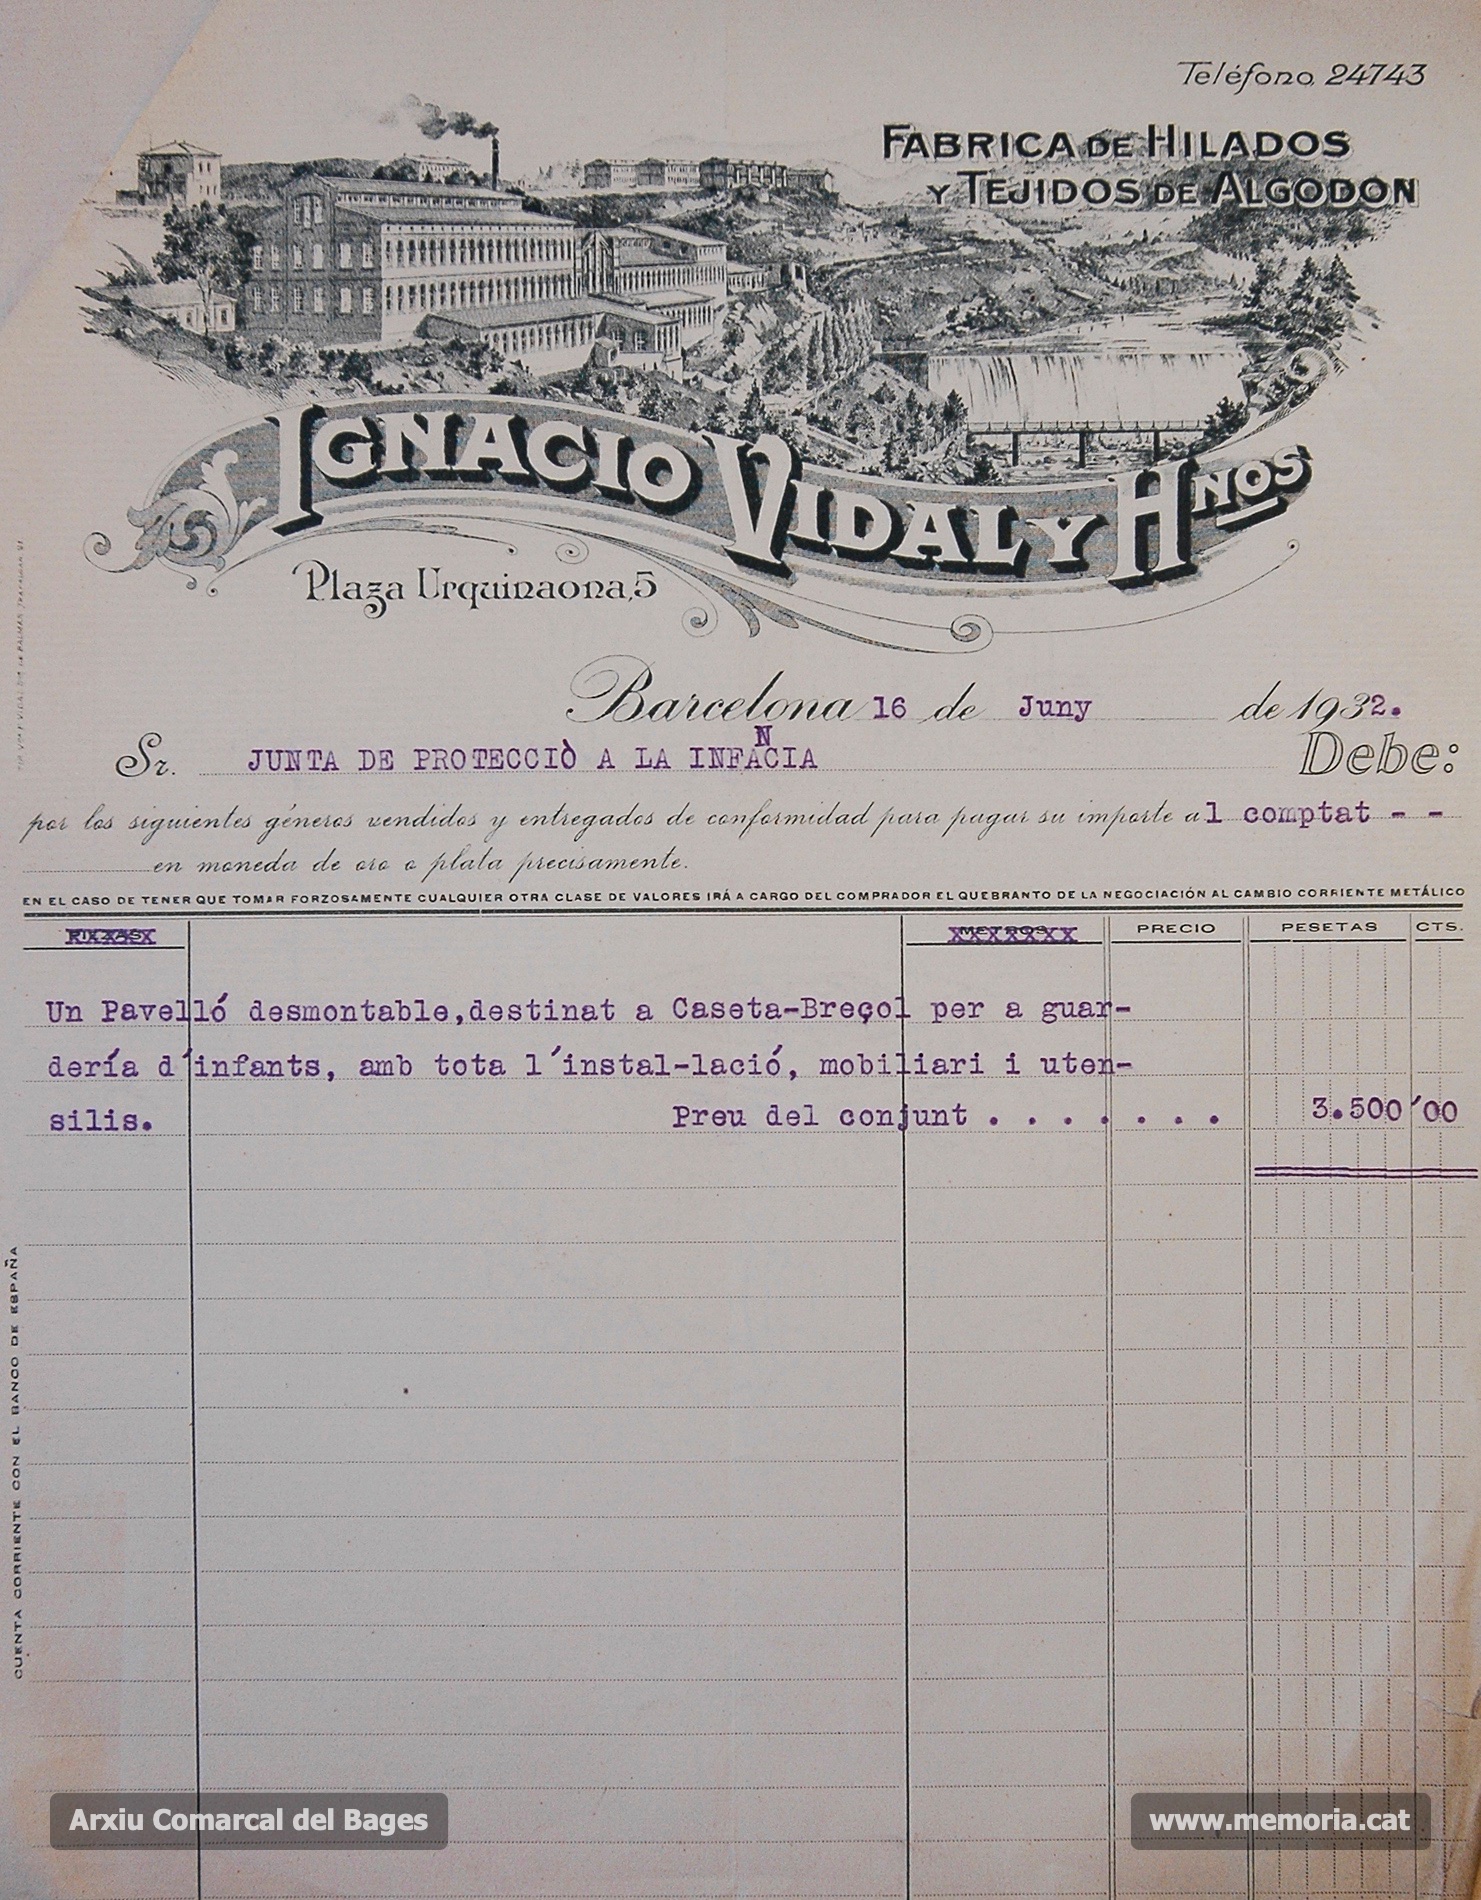 Teléfono, 24743
FABRICA DE HILADOS
Y TEJIDOS DE ALGODON
IGNACIO VIDAL Y HNOS
Plaza Urquinaona, 5
Barcelona 16 de Juny de 1932.
N
Sr. JUNTA DE PROTECCIÒ A LA INFACIA Debe:
por los siguientes géneros vendidos y entregados de conformidad para pagar su importe al comptat - -
en moneda de oro o plata precisamente.
EN EL CASO DE TENER QUE TOMAR FORZOSAMENTE CUALQUIER OTRA CLASE DE VALORES IRÁ A CARGO DEL COMPRADOR EL QUEBRANTO DE LA NEGOCIACIÓN AL CAMBIO CORRIENTE METÁLICO
PIEZAS METROS PRECIO PESETAS CTS.
Un Pavelló desmontable,destinat a Caseta-Breçol per a guar-
dería d'infants, amb tota l'instal-lació, mobiliari i uten-
silis. Preu del conjunt . . . . . . . 3.500'00
CUENTA CORRIENTE CON EL BANCO DE ESPAÑA
Arxiu Comarcal del Bages
www.memoria.cat